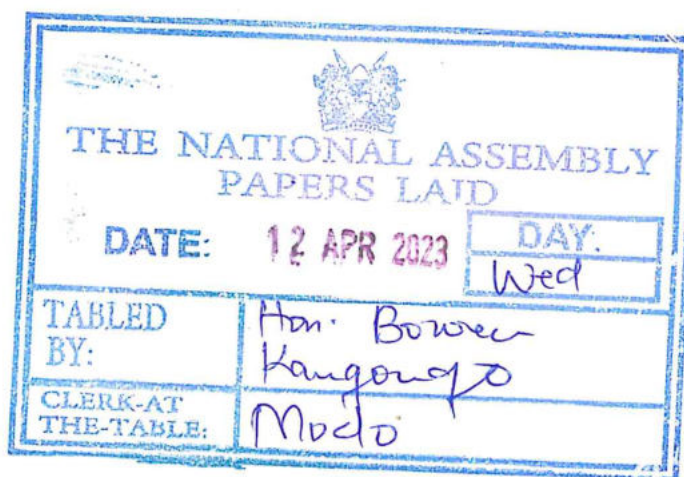 THE NATIONAL ASSEMBLY
PAPERS LAID
DATE: 12 APR 2023
DAY:
Wed
TABLED
BY:
Hon. Bowen
Kangongo
CLERK-AT
THE-TABLE:
Modo